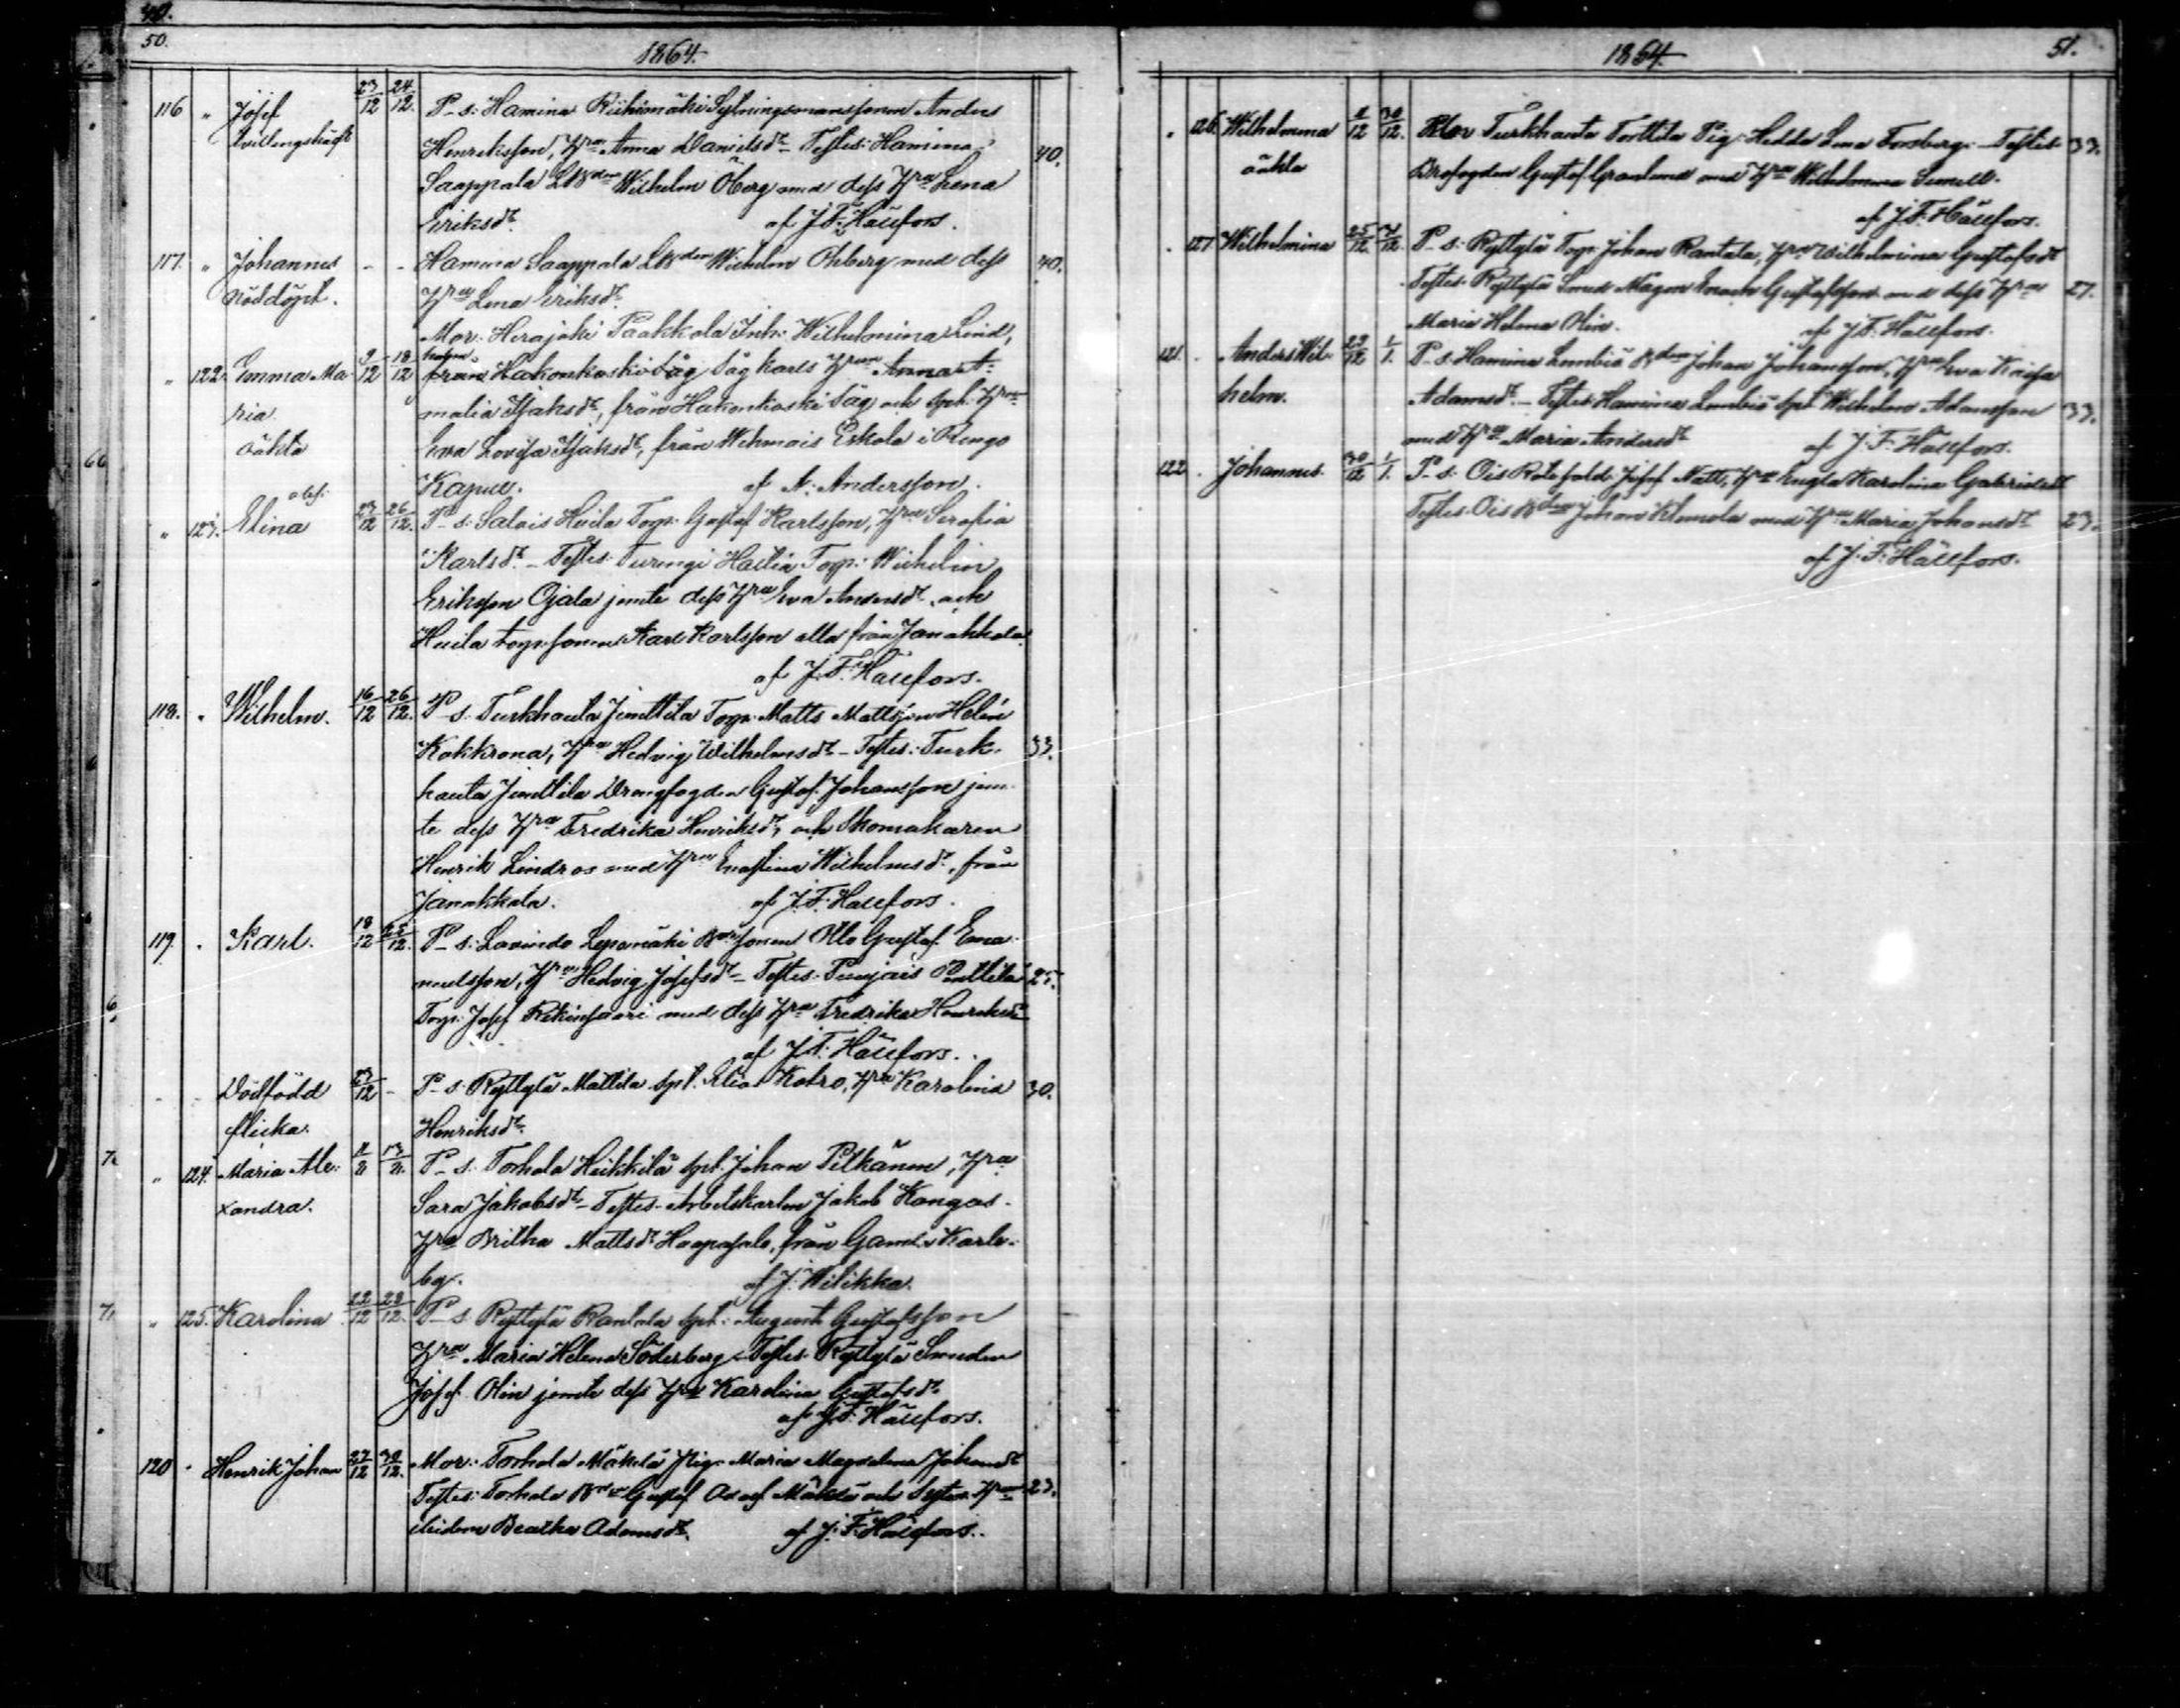 50.
1864.
116 " Josef 23/12 24/12. P-s: Hamina Riihimäki Sytningsmanssonen Anders
tvillingskift Henriksson, Hru Anna Danielsdr - Testes: Hamina 40.
Saappala LBden Wilhelm Öberg med dess Hru Lena
Eriksdr. af J. F. Hällfors.
117. " Johannes - - Hamina Saappala LBden Wilhelm Öhberg med dess 40.
nöddöpt. Hru Lena Eriksdr.
Mor: Herajoki Paakkola Inh: Wilhelmina Lind,
" 122. Emma Ma- 9/12 18/12 från Hakonkoski Såg Sågkarls Hrun Anna A-
ria. malia Isaksdr, från Hakonkoski Såg och Spl: Hrun
oäkta Eva Lovisa Isaksdr, från Wehmais Eskola i Rengo
Kapell. af A. Andersson.
" 123. Elina 23/12 26/12. P-s: Salois Huila Torp: Gustaf Karlsson, Hru Serafia
Karlsdr. - Testes: Turengi Hallia Torp: Wilhelm
Eriksson Ojala jemte dess Hru Eva Andersdr, och
Huila torp.sonen Karl Karlsson alla från Janakkala
af J. F. Hällfors.
118. " Wilhelm. 16/12 26/12. P-s: Turkhauta Jimttila Torp: Matts Mattsson Helin
Kokkrona, Hru Hedvig Wilhelmsdr - Testes: Turk- 33.
hauta Jimttila Drengfogden Gustaf Johansson jem-
te dess Hru Fredrika Henriksdr, och Skomakaren
Henrik Lindros med Hrun Wilhelmsdr, från
Janakkala. af J. F. Hällfors.
119. . Karl. 18/12 25/12. P-s: Lavindo Lepomäki Bondsonen Otto Gustaf Ema-
nuelsson, Hru Hedvig Josefsdr - Testes: Punjais Penttilä 25.
Torp: Josef Rekinsaari med dess Hru Fredrika Henriksdr
af J. F. Hällfors.
- - Dödfödd 23/12 - P-s: Ryttylä Mattila Spl. Elias Kokro, Hru Karolina 30.
flicka. Henriksdr.
7. " 124. Maria Ale- P-s: Torhola Heikkilä Spl. Johan Pitkänen, Hru
xandra. Sara Jakobsdr - Testes: Arbetskarlen Jakob Kangas
Hru Britha Mattsdr Haapasalo, från Gamla Karle-
by. af J. Wilikka.
7. " 125. Karolina 22/12 28/12. P-s: Ryttylä Rantala Spl: August Gustafsson
Hru Maria Helena Söderberg - Testes: Ryttylä Smeden
Josef Olin jemte dess Hru Karolina Gustafsdr.
af J. F. Hällfors.
120 . Henrik Johan 27/12 30/12. Mor: Torhola Mäkilä Pig: Maria Magdalena Johansdr
Testes: Torhola Bn Gustaf Adolf Mäkilä och Sytn: Hrun 23.
ibidem Beatha Adamsdr. af J. F. Hällfors.
1864. 51.
" 126. Wilhelmina 8/12 30/12. Mor Turkhauta Torttila Pig: Hedda Lena Forsberg - Testes 33.
oäkta Brofogden Gustaf Granlund med Hru Wilhelmina Sunell.
af J. F. Hällfors.
. 127 Wilhelmina 25/12 P-s: Ryttylä Torp: Johan Rantala, Hru Wilhelmina Gustafsdr
Testes: Ryttylä Smed Mågen Enoch Gustafsson med dess Hru 27.
Maria Helena Olin. af J. F. Hällfors.
121. . Anders Wil- 29/12 1/1. P-s: Hamina Lembis Bden Johan Johansson, Hru Eva Kaisa
helm. Adamsdr. - Testes: Hamina Lembis Spl Wilhelm Adamsson 33.
med Hru Maria Andersdr. af J. F. Hällfors.
122 . Johannes. 30/12 1/1. P-s: Ois Rotefolds Josef Matts, Hru Engla Karolina Gabrielsdr
Testes: Ois Bden Johan Klemola med Hru Maria Johansdr 23.
af J. F. Hällfors.